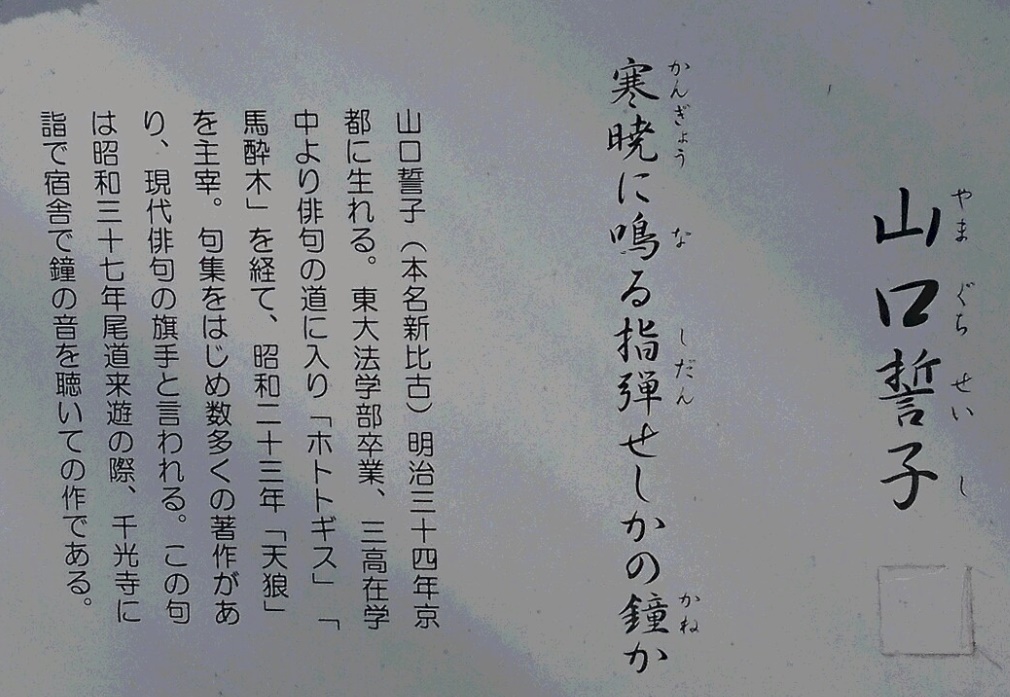 山口誓子
やまぐちせいし
寒暁に鳴る指弾せしかの鐘か
かんぎょう な しだん かね
山口誓子（本名新比古）明治三十四年京
都に生れる。東大法学部卒業、三高在学
中より俳句の道に入り「ホトトギス」「
馬酔木」を経て、昭和二十三年「天狼」
を主宰。句集をはじめ数多くの著作があ
り、現代俳句の旗手と言われる。この句
は昭和三十七年尾道来遊の際、千光寺に
詣で宿舎で鐘の音を聴いての作である。